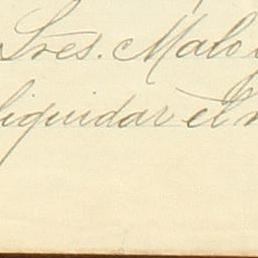 Sres. Malo
liquidar el